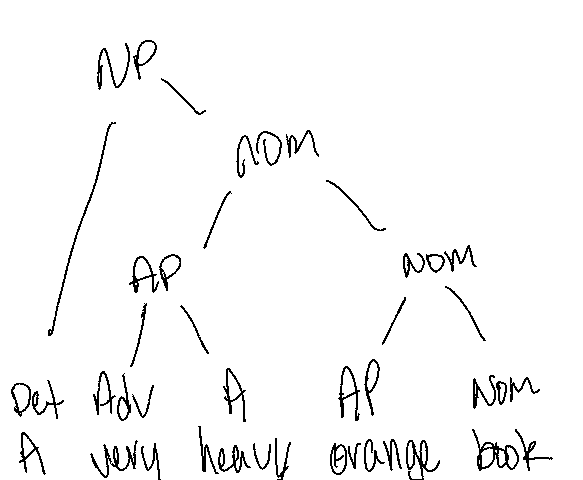 NP
nom
AP nom
Det Adv A AP Nom
A very heavy orange book